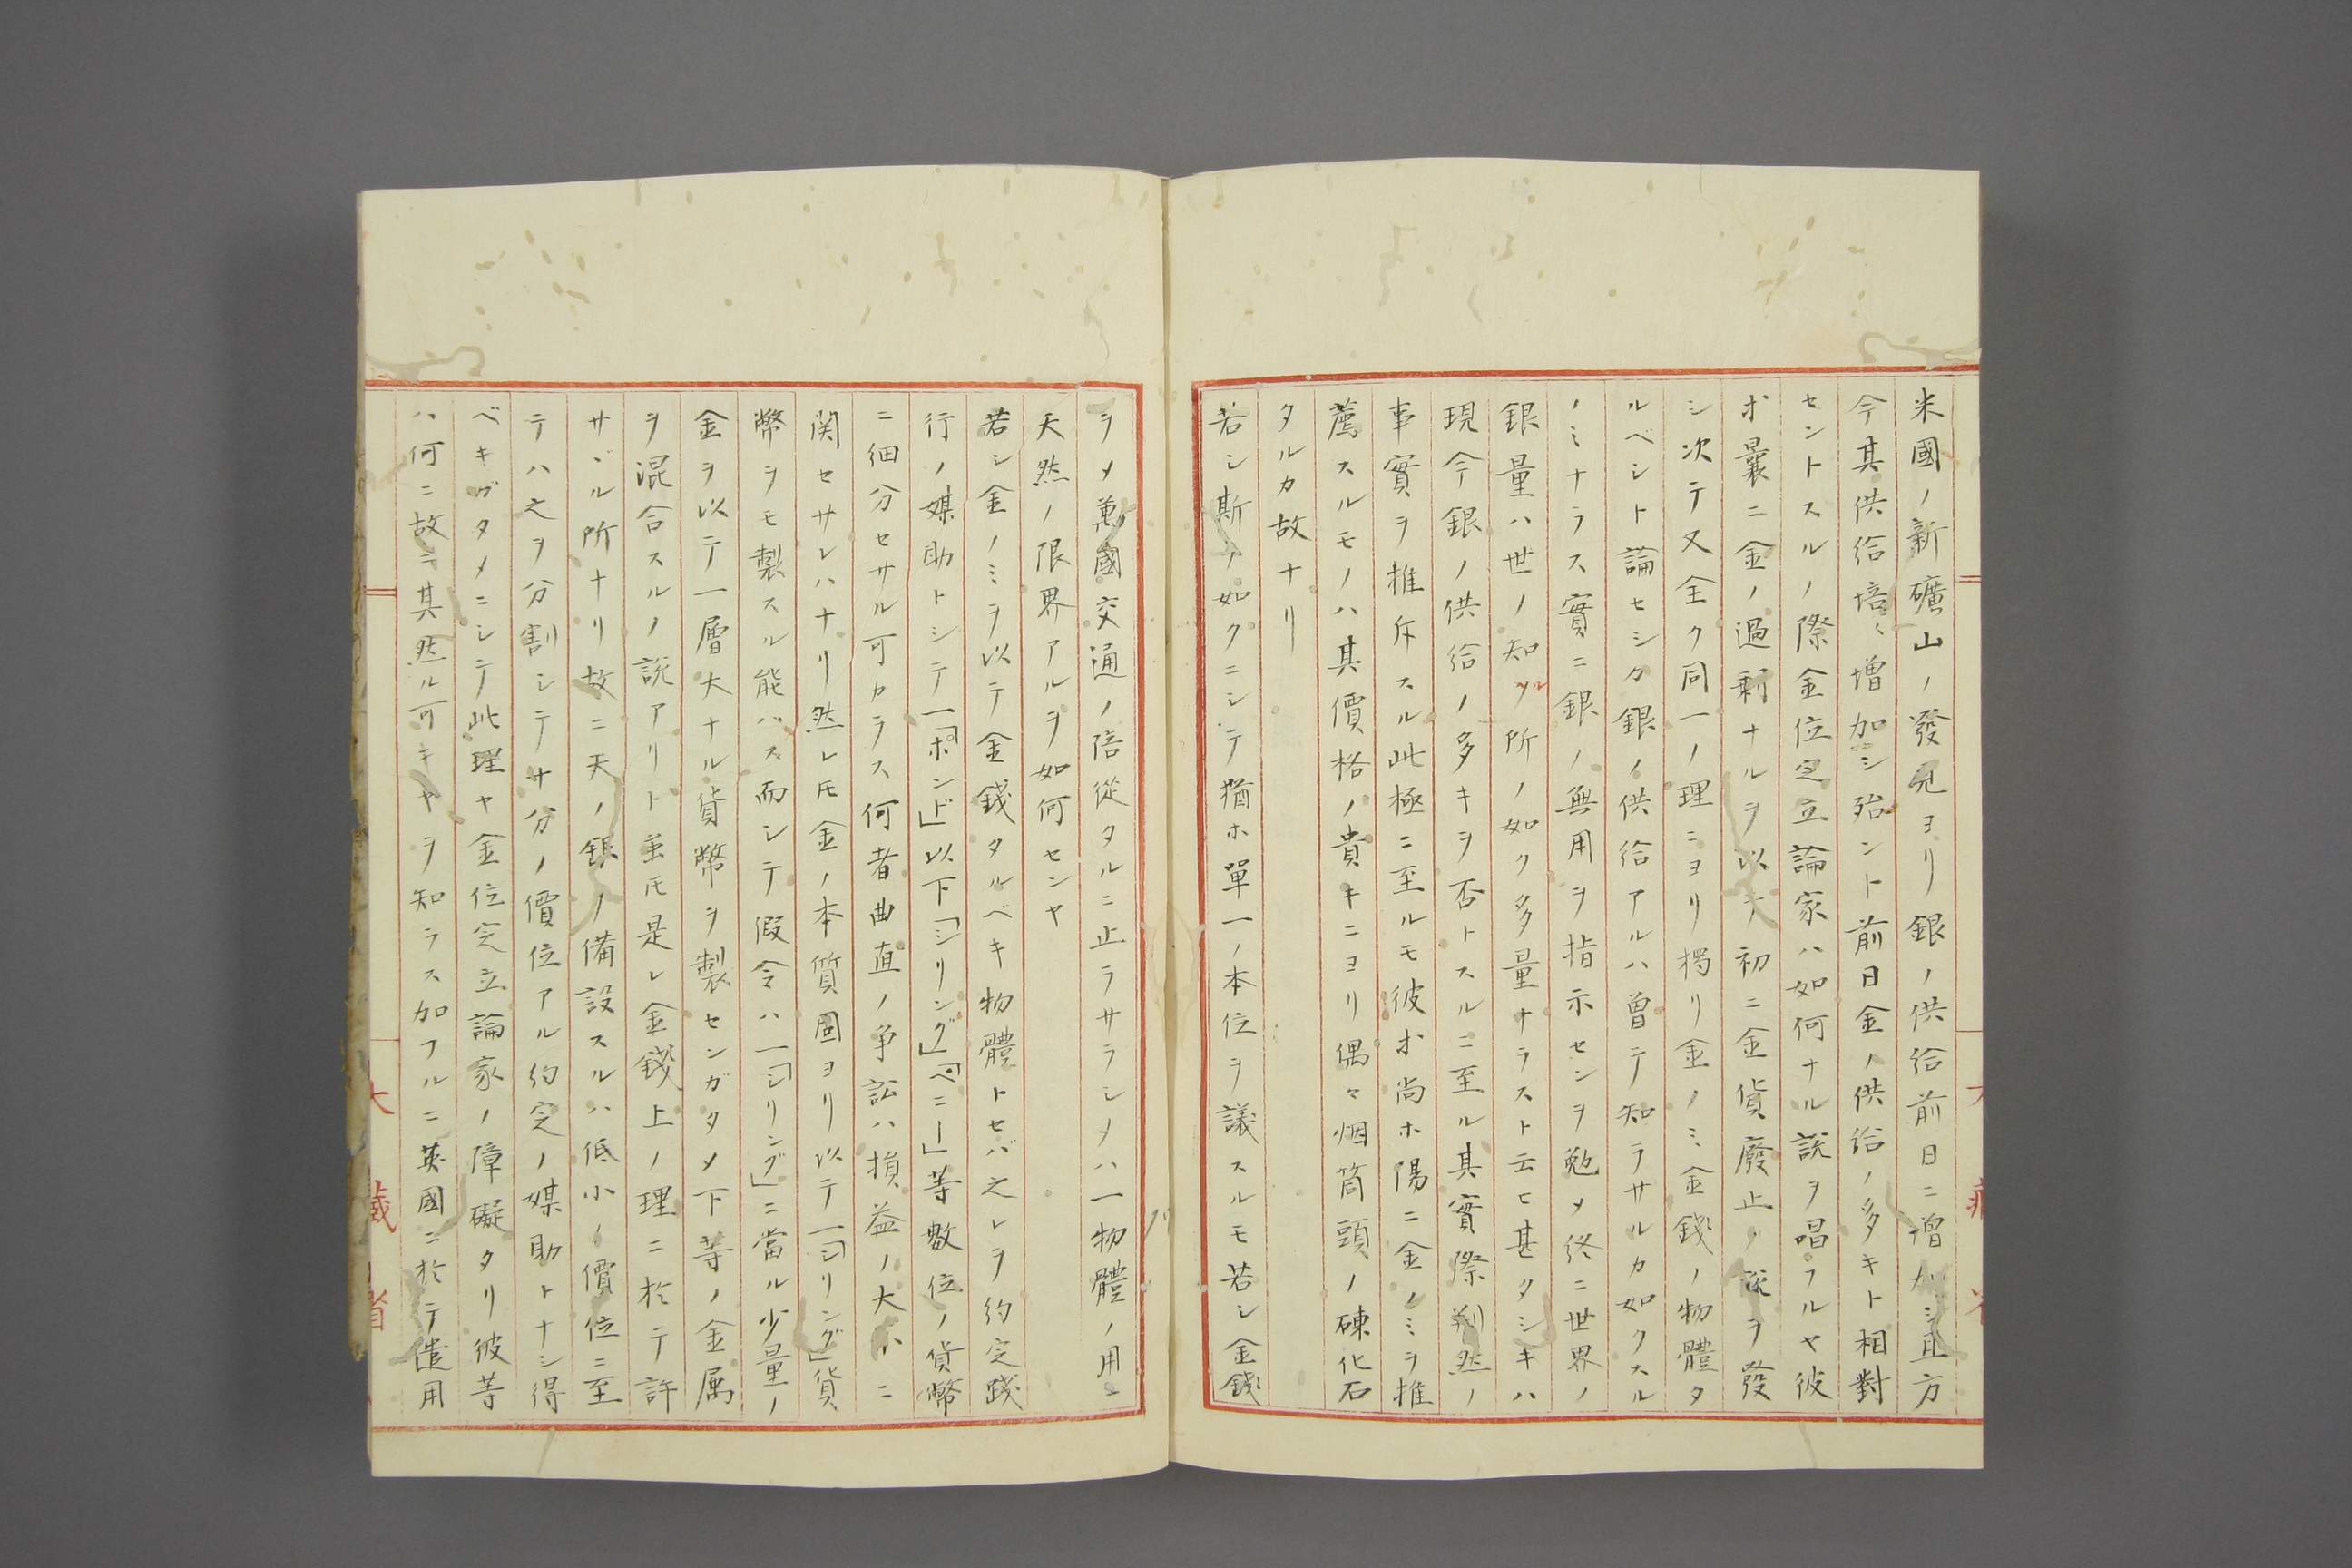 米國ノ新礦山ノ發見ヨリ銀ノ供給前日ニ增加シ且方
今其供給培〻增加シ殆ント前日金ノ供給ノ多キト相對
セントスルノ際金位定立論家ハ如何ナル説ヲ唱フルヤ彼
ホ曩ニ金ノ過剰ナルヲ以テ初ニ金貨廢止ノ説ヲ發
シ次テ又全ク同一ノ理ニヨリ獨リ金ノミ金錢ノ物體タ
ルベシト論セシク銀ノ供給アルハ曽テ知ラサルカ如クスル
ノミナラス實ニ銀ノ無用ヲ指示センヲ勉メ終ニ世界ノ
銀量ハ世ノ知ル所ノ如ク多量ナラスト云ヒ甚タシキハ
現今銀ノ供給ノ多キヲ否トスルニ至ル其實際判然ノ
事實ヲ推斥スル此極ニ至ルモ彼ホ尚ホ陽ニ金ノミヲ推
薦スルモノハ其價格ノ貴キニヨリ偶々烟筒頭ノ磚化石
タルカ故ナリ
若シ斯ノ如クニシテ猶ホ單一ノ本位ヲ議スルモ若シ金錢
ヲメ萬國交通ノ陪從タルニ止ラサラシメハ一物體ノ用ニ
天然ノ限界アルヲ如何センヤ
若シ金ノミヲ以テ金錢タルベキ物體トセバ之レヲ約定踐
行ノ媒助トシテ一「ポンド」以下「シリング」「ペニー」等數位ノ貨幣
ニ細分セサル可カラス何者曲直ノ争訟ハ損益ノ大小ニ
関セサレハナリ然レ𪜈金ノ本質固ヨリ以テ一「シリング」貨
幣ヲモ製スル能ハス而シテ假令ハ一「シリング」ニ當ル少量ノ
金ヲ以テ一層大ナル貨幣ヲ製センガタメ下等ノ金属
ヲ混合スルノ説アリト虽𪜈是レ金錢上ノ理ニ於テ許
サヾル所ナリ故ニ天ノ銀ノ備設スルハ低小ノ價位ニ至
テハ之ヲ分割シテ廿分ノ價位アル約定ノ媒助トナシ得
ベキガタメニシテ此理ヤ金位定立論家ノ障礙タリ彼等
ハ何ニ故ニ其然ル可キヤヲ知ラス加フルニ英國ニ於テ遣用
大藏省